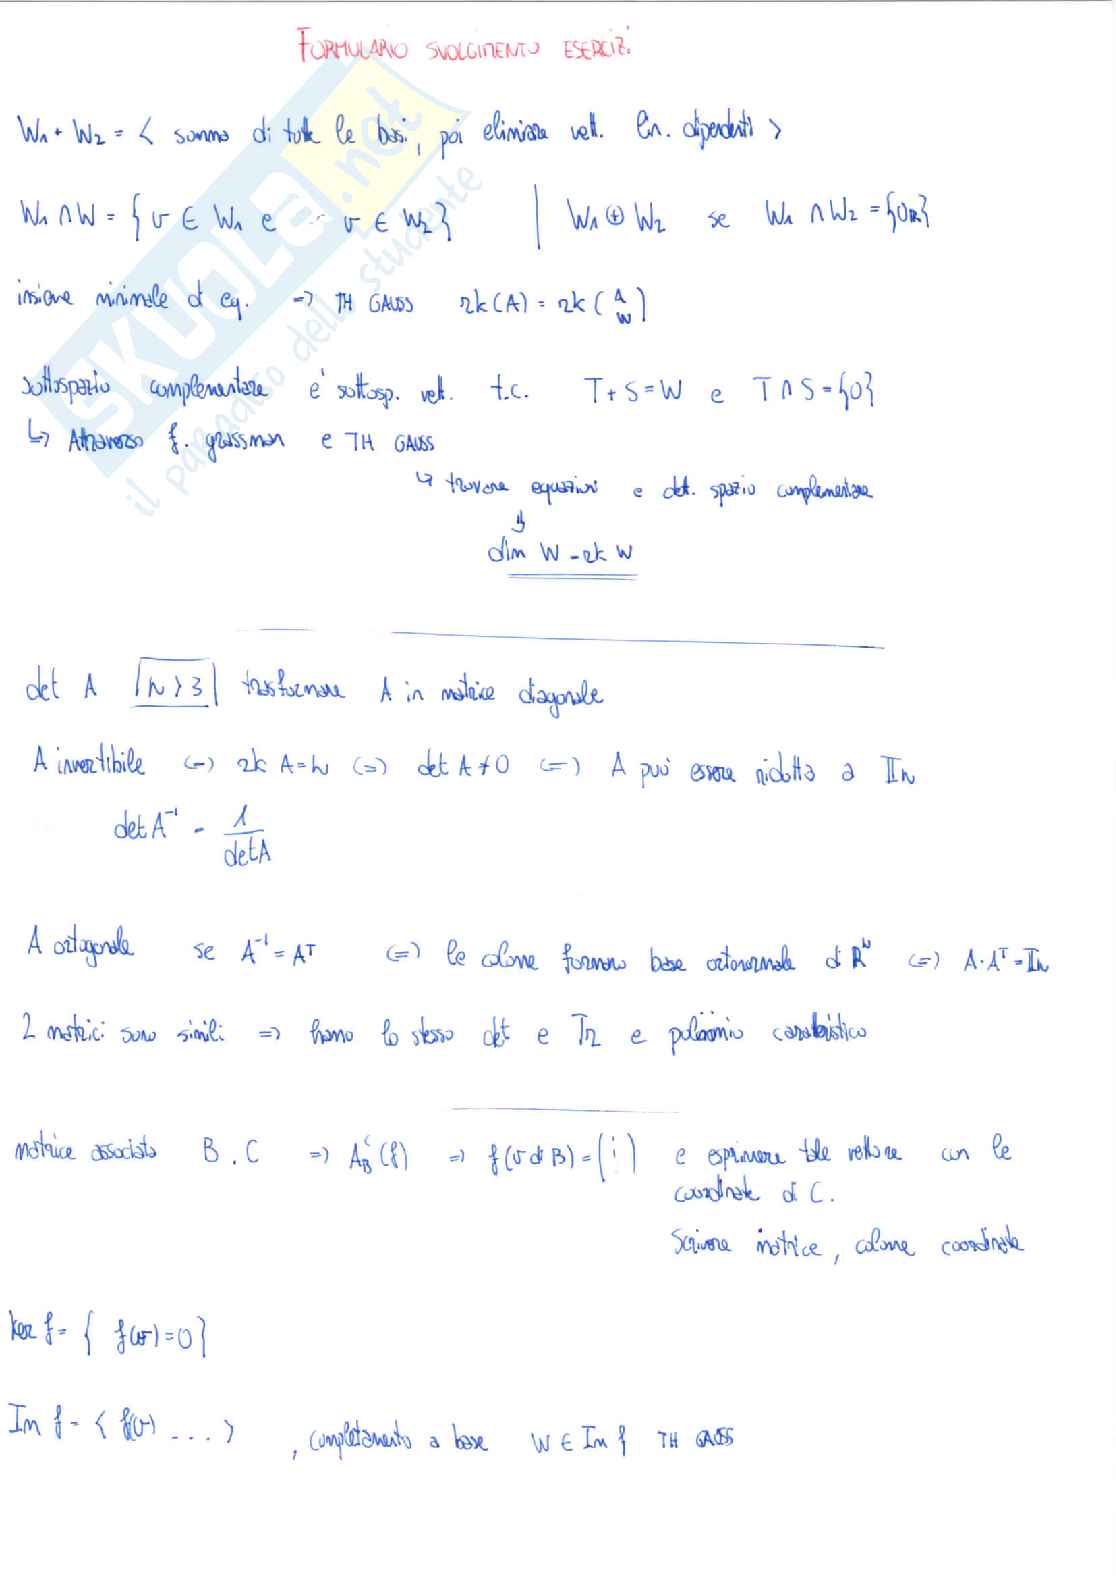 FORMULARIO SVOLGIMENTO ESERCIZI
W1 + W2 = < somma di tutte le basi, poi eliminare vett. lin. dipendenti >
W1 ∩ W = { v ∈ W1 e v ∈ W2 } | W1 ⊕ W2 se W1 ∩ W2 = {0R}
insieme minimale di eq. => TH GAUSS rk(A) = rk(A W)
sottospazio complementare è sottosp. vett. t.c. T + S = W e T ∩ S = {0}
↳ Attraverso f. grassman e TH GAUSS
↳ trovare equazioni e det. spazio complementare
⇓
dim W - rk W
det A n > 3 trasformare A in matrice diagonale
A invertibile <=> rk A = n <=> det A ≠ 0 <=> A può essere ridotta a In
det A⁻¹ = 1/det A
A ortogonale se A⁻¹ = Aᵀ <=> le colonne formano base ortonormale di Rⁿ <=> A · Aᵀ = In
2 matrici sono simili => hanno lo stesso det e Tr e polinomio caratteristico
matrice associata B, C => A_B^C (f) => f(v di B) = ( ⋮ ) e esprimere tale vettore con le
coordinate di C.
Scrivere matrice, colonne coordinate
Ker f = { f(v) = 0 }
Im f = < f(v) ... > , completamento a base W ∈ Im f TH GAUSS
SKUOLA.net
il paradiso dello studente